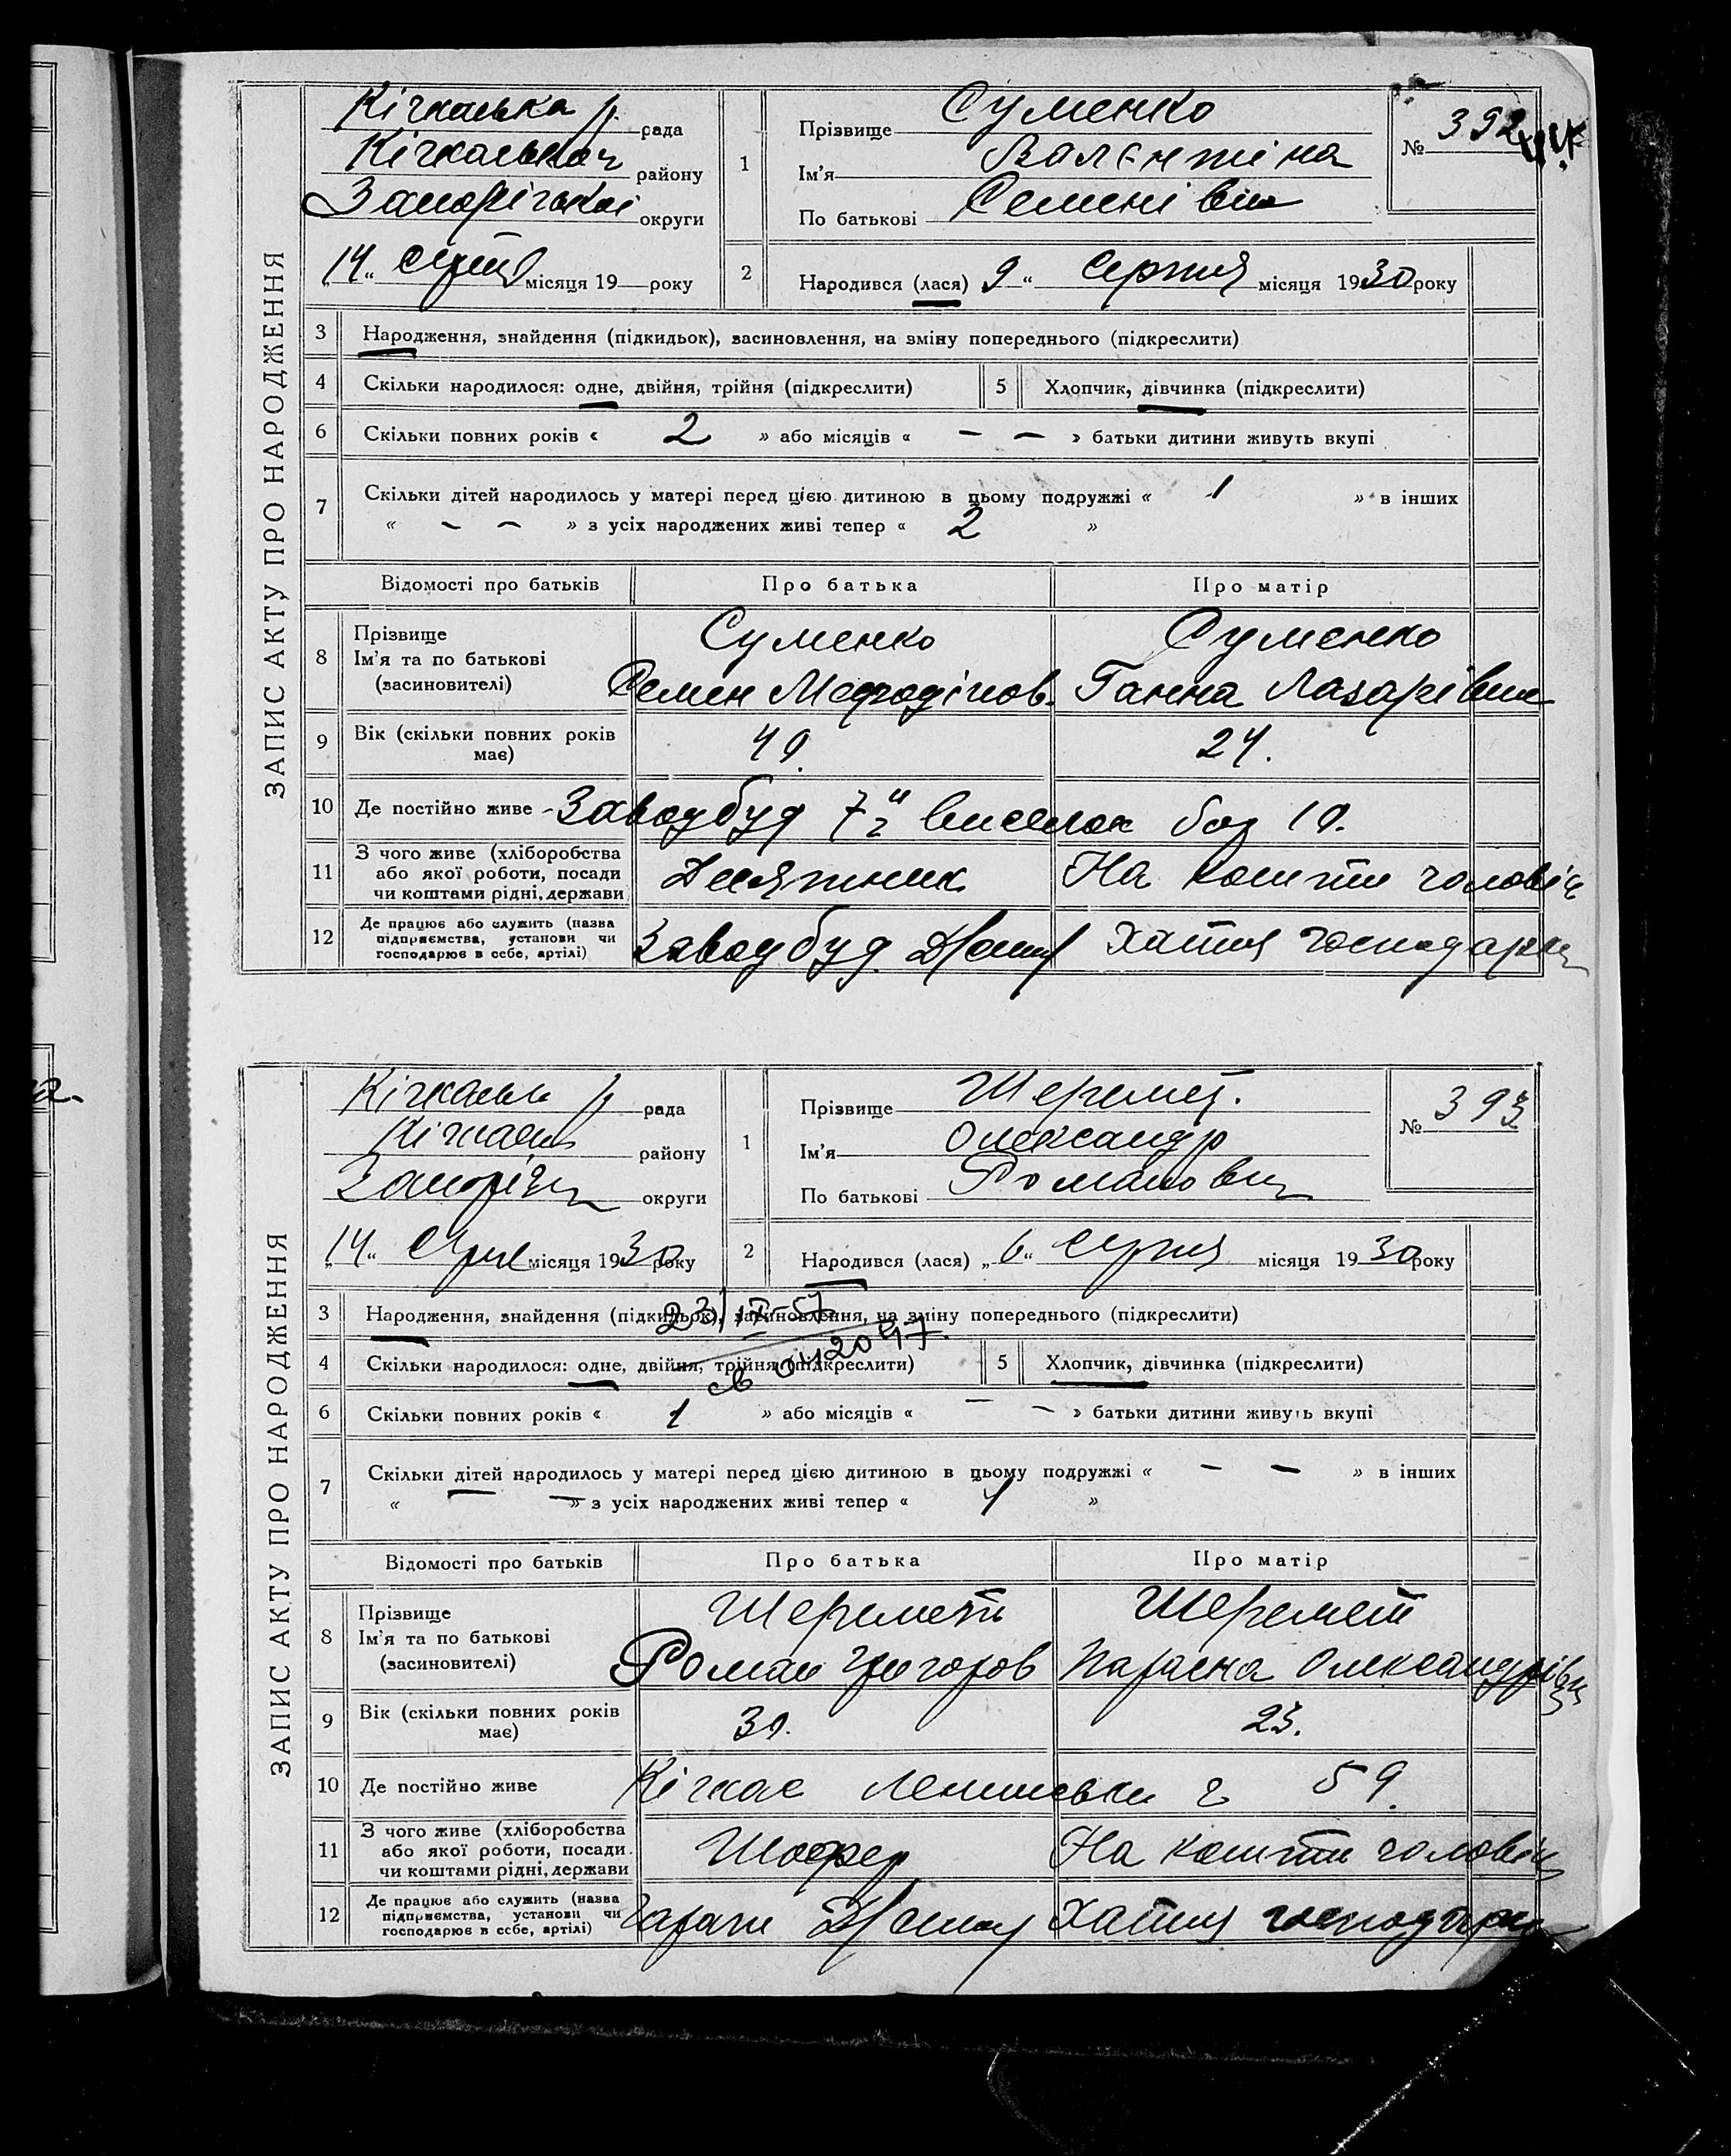 ЗАПИС АКТУ ПРО НАРОДЖЕННЯ
Кічкаська р. рада
Кічкаськог району
Запорізької округи
„14“ серпня місяця 19 року
1 Прізвище Суменко
Ім'я Валєнтіна
По батькові Семенівна
№ 392
2 Народився (лася) 9 “ Серпня місяця 1930 року
3 Народження, знайдення (підкидьок), засиновлення, на зміну попереднього (підкреслити)
4 Скільки народилося: одне, двійня, трійня (підкреслити) 5 Хлопчик, дівчинка (підкреслити)
6 Скільки повних років « 2 » або місяців « — — » батьки дитини живуть вкупі
7 Скільки дітей народилось у матері перед цією дитиною в цьому подружжі « 1 » в інших
« — — » з усіх народжених живі тепер « 2 »
Відомості про батьків Про батька Про матір
8 Прізвище Ім'я та по батькові (засиновителі)
Суменко Суменко
Семен Мефодіїов. Ганна Лазарівна
9 Вік (скільки повних років має) 49. 24.
10 Де постійно живе - Заводбуд 7й виселок 19.
11 З чого живе (хліборобства або якої роботи, посади чи коштами рідні, держави Десятник На кошти чоловік
12 Де працює або служить (назва підприємства, установи чи господарює в себе, артілі) Заводбуд. Хатня господарка
ЗАПИС АКТУ ПРО НАРОДЖЕННЯ
Кічкаськ р рада
Кічкаськ району
Запоріжц округи
„14“ Серпн місяця 1930 року
1 Прізвище Шеремет.
Ім'я Олександр
По батькові Романович
№ 393
2 Народився (лася) „6“ Серпня місяця 1930 року
3 Народження, знайдення (підкидьок), засиновлення, на зміну попереднього (підкреслити)
4 Скільки народилося: одне, двійня, трійня (підкреслити) 5 Хлопчик, дівчинка (підкреслити)
6 Скільки повних років « 1 » або місяців « — — » батьки дитини живуть вкупі
7 Скільки дітей народилось у матері перед цією дитиною в цьому подружжі « — — » в інших
« — — » з усіх народжених живі тепер « 1 »
Відомості про батьків Про батька Про матір
8 Прізвище Ім'я та по батькові (засиновителі)
Шеремет Шеремет
Роман Григоров Параска Олександрівн
9 Вік (скільки повних років має) 23.
10 Де постійно живе Кічкас 59.
11 З чого живе (хліборобства або якої роботи, посади чи коштами рідні, держави Шофер На кошти чоловік
12 Де працює або служить (назва підприємства, установи чи господарює в себе, артілі) Гараж Хатня господарка